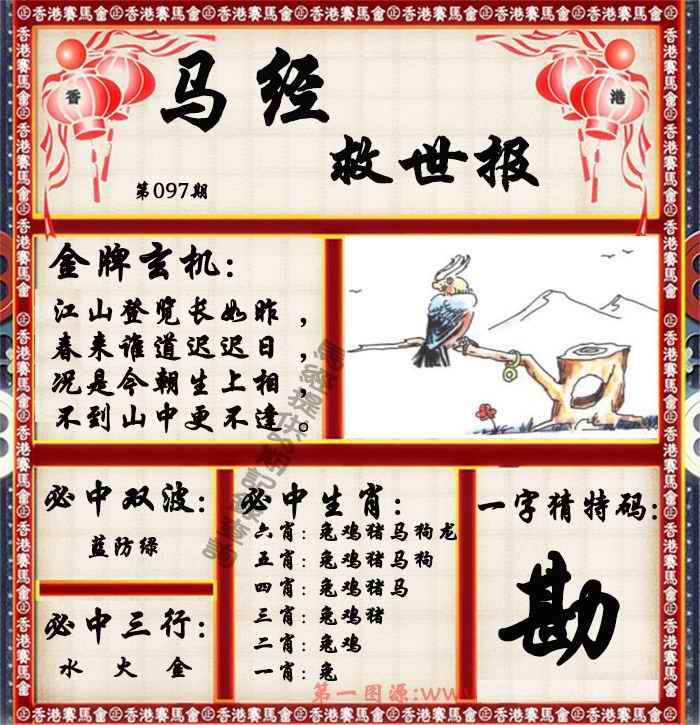 香港賽馬會
香
港
马经
救世报
第097期
金牌玄机:
江山登览长如昨，
春来谁道迟迟日，
况是今朝生上相，
不到山中更不逢。
必中双波:
蓝防绿
必中三行:
水 火 金
必中生肖:
六肖: 兔鸡猪马狗龙
五肖: 兔鸡猪马狗
四肖: 兔鸡猪马
三肖: 兔鸡猪
二肖: 兔鸡
一肖: 兔
一字猜特码:
勘
第一图源:www